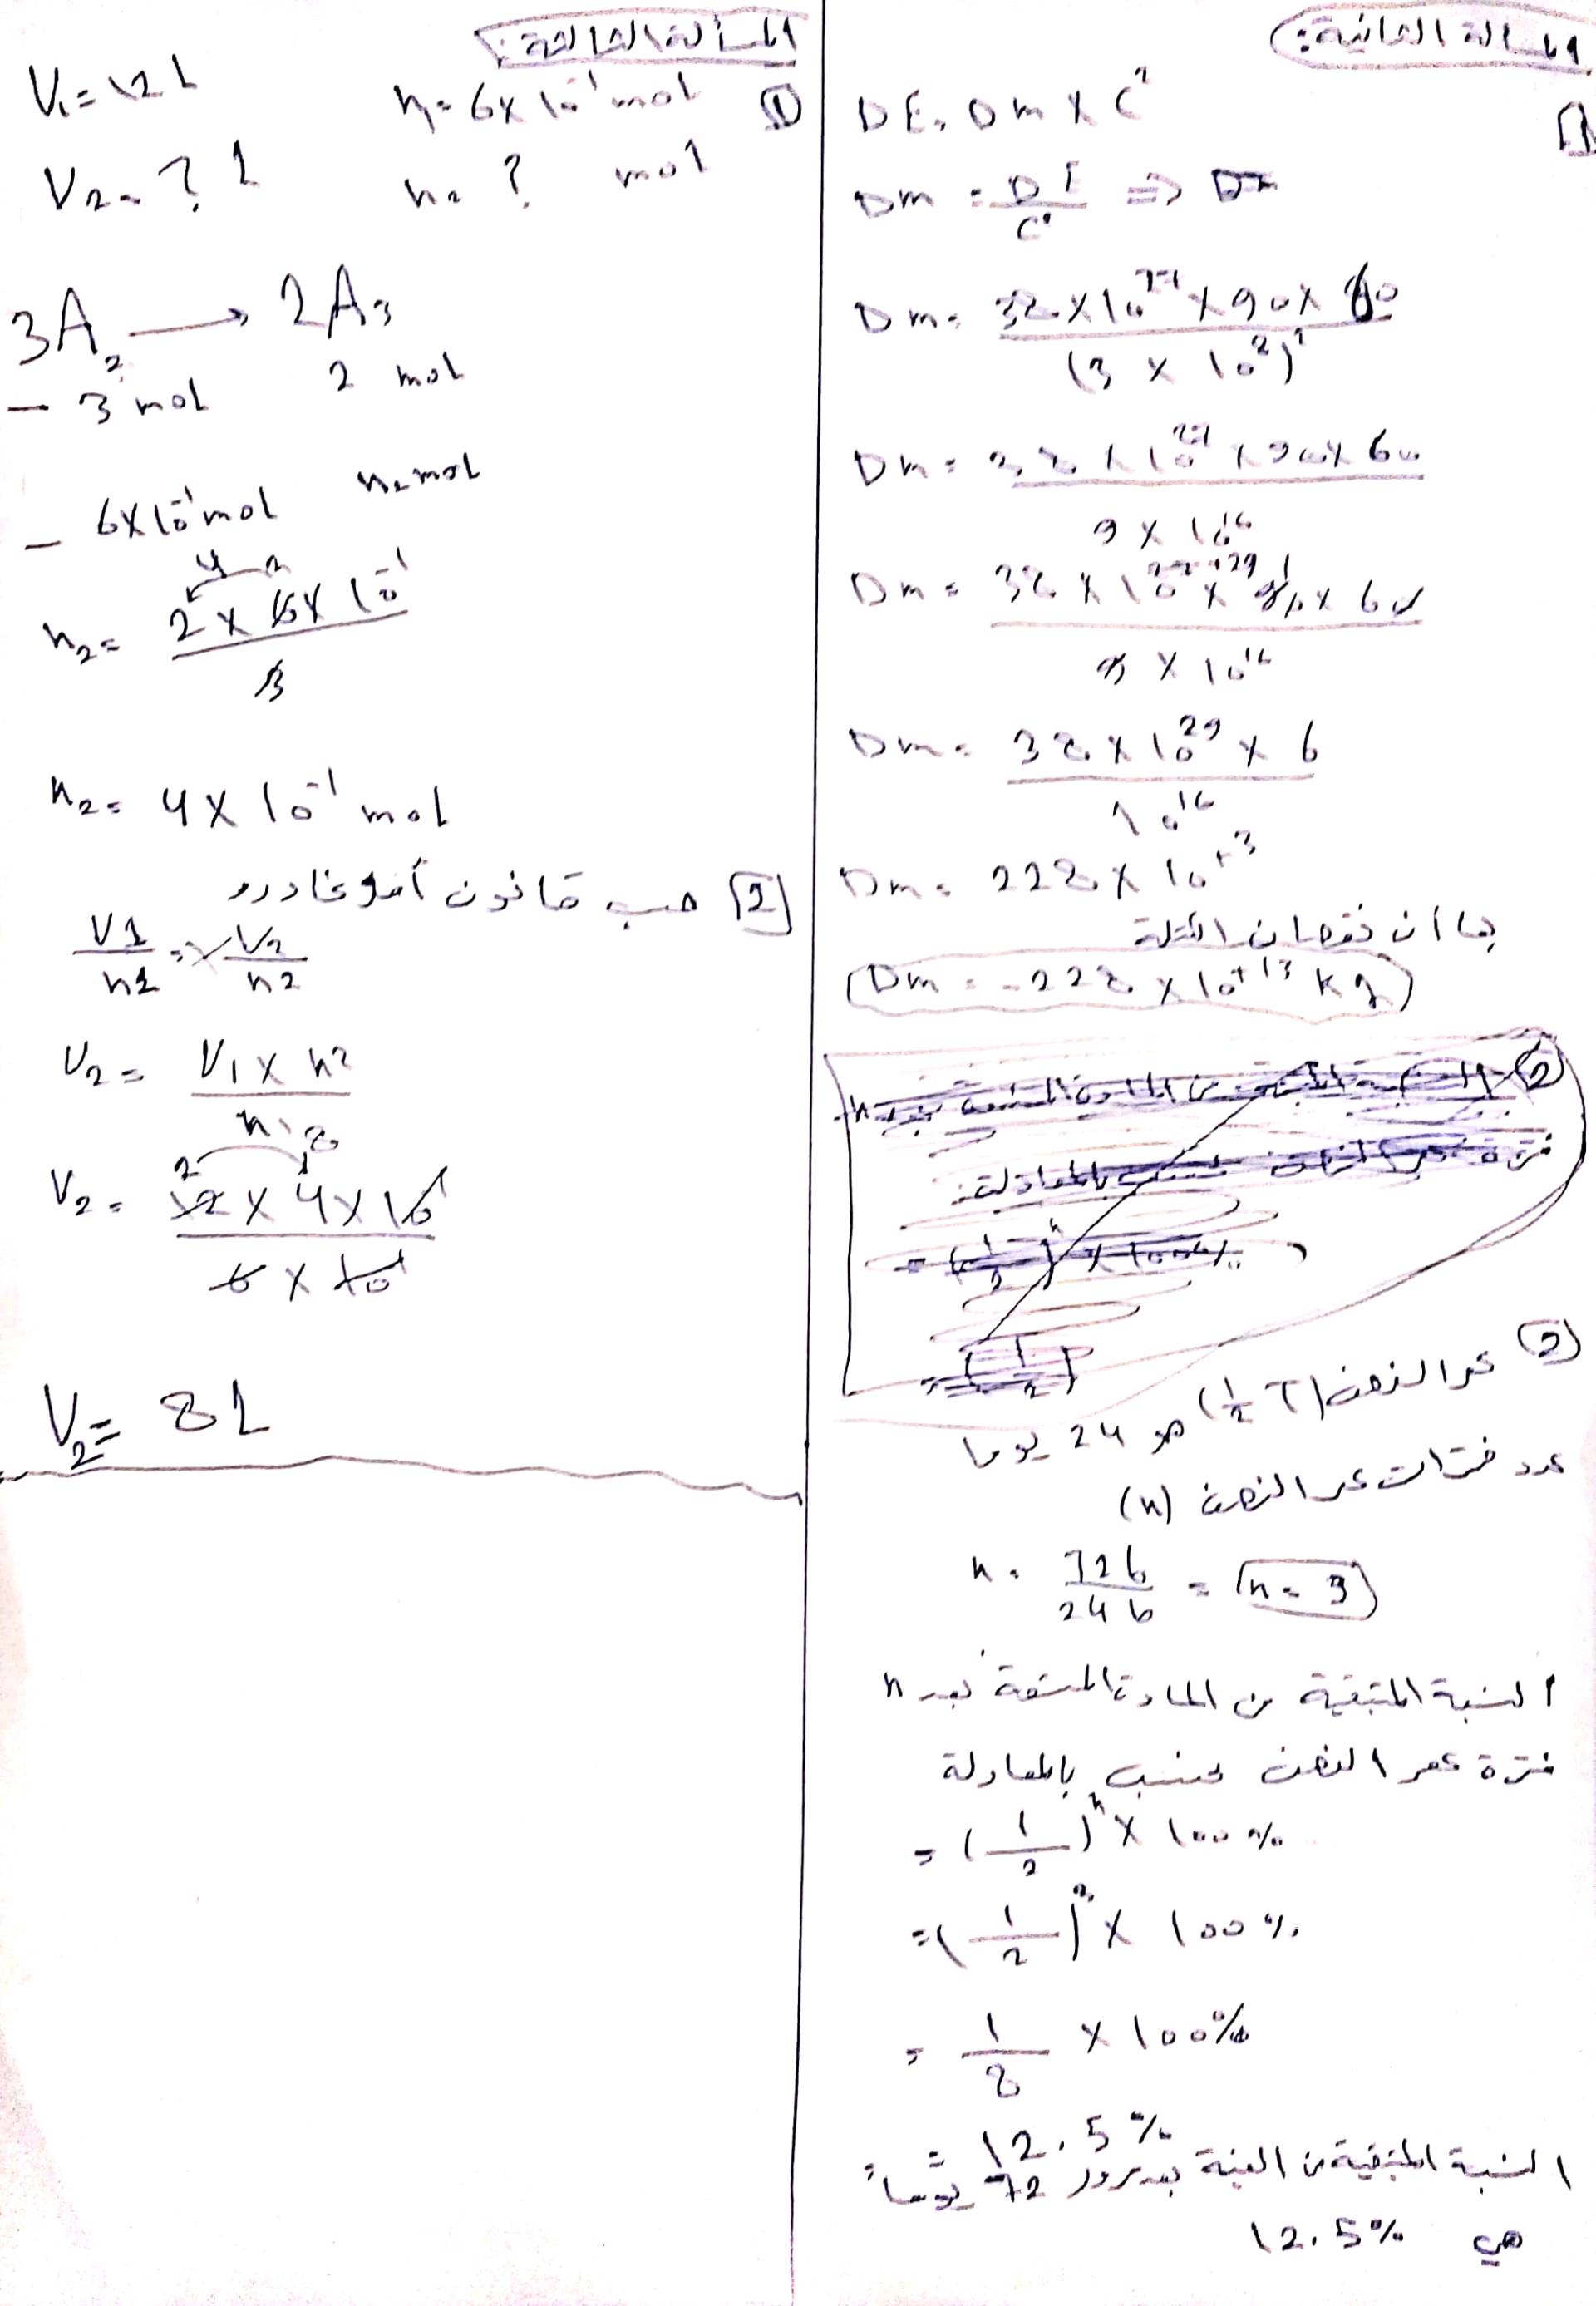 المسألة الثانية:
1
DE = Dm x C²
Dm = DE / C² =>
Dm = 38 x 10²⁷ x 90 x 60 / (3 x 10⁸)²
Dm = 38 x 10²⁷ x 90 x 60 / 9 x 10¹⁶
Dm = 38 x 10²⁹ x 6 / 10¹⁶
Dm = 228 x 10⁺¹³
بما أن نقصان الكتلة
Dm = -228 x 10⁺¹³ kg
2 عمر النصف (T ½) هو 24 يوما
عدد فترات عمر النصف (n)
n = 72 / 24 = n = 3
النسبة المتبقية من المادة المشعة بعد n
فترة عمر النصف تحسب بالمعادلة
= (1/2)ⁿ x 100%
= (1/2)³ x 100%
= 1/8 x 100%
= 12.5%
النسبة المتبقية من العينة بعد مرور 72 يوماً
هي 12.5%
المسألة الثالثة:
1
V₁ = 12 L n₁ = 6 x 10⁻¹ mol
V₂ = ? L n₂ ? mol
3A₂ → 2A₃
3 mol 2 mol
6 x 10⁻¹ mol n₂ mol
n₂ = 2 x 6 x 10⁻¹ / 3
n₂ = 4 x 10⁻¹ mol
2 حسب قانون أفوغادرو
V1 / n1 = V2 / n2
V₂ = V1 x n2 / n1
V₂ = 12 x 4 x 10⁻¹ / 6 x 10⁻¹
V₂ = 8 L